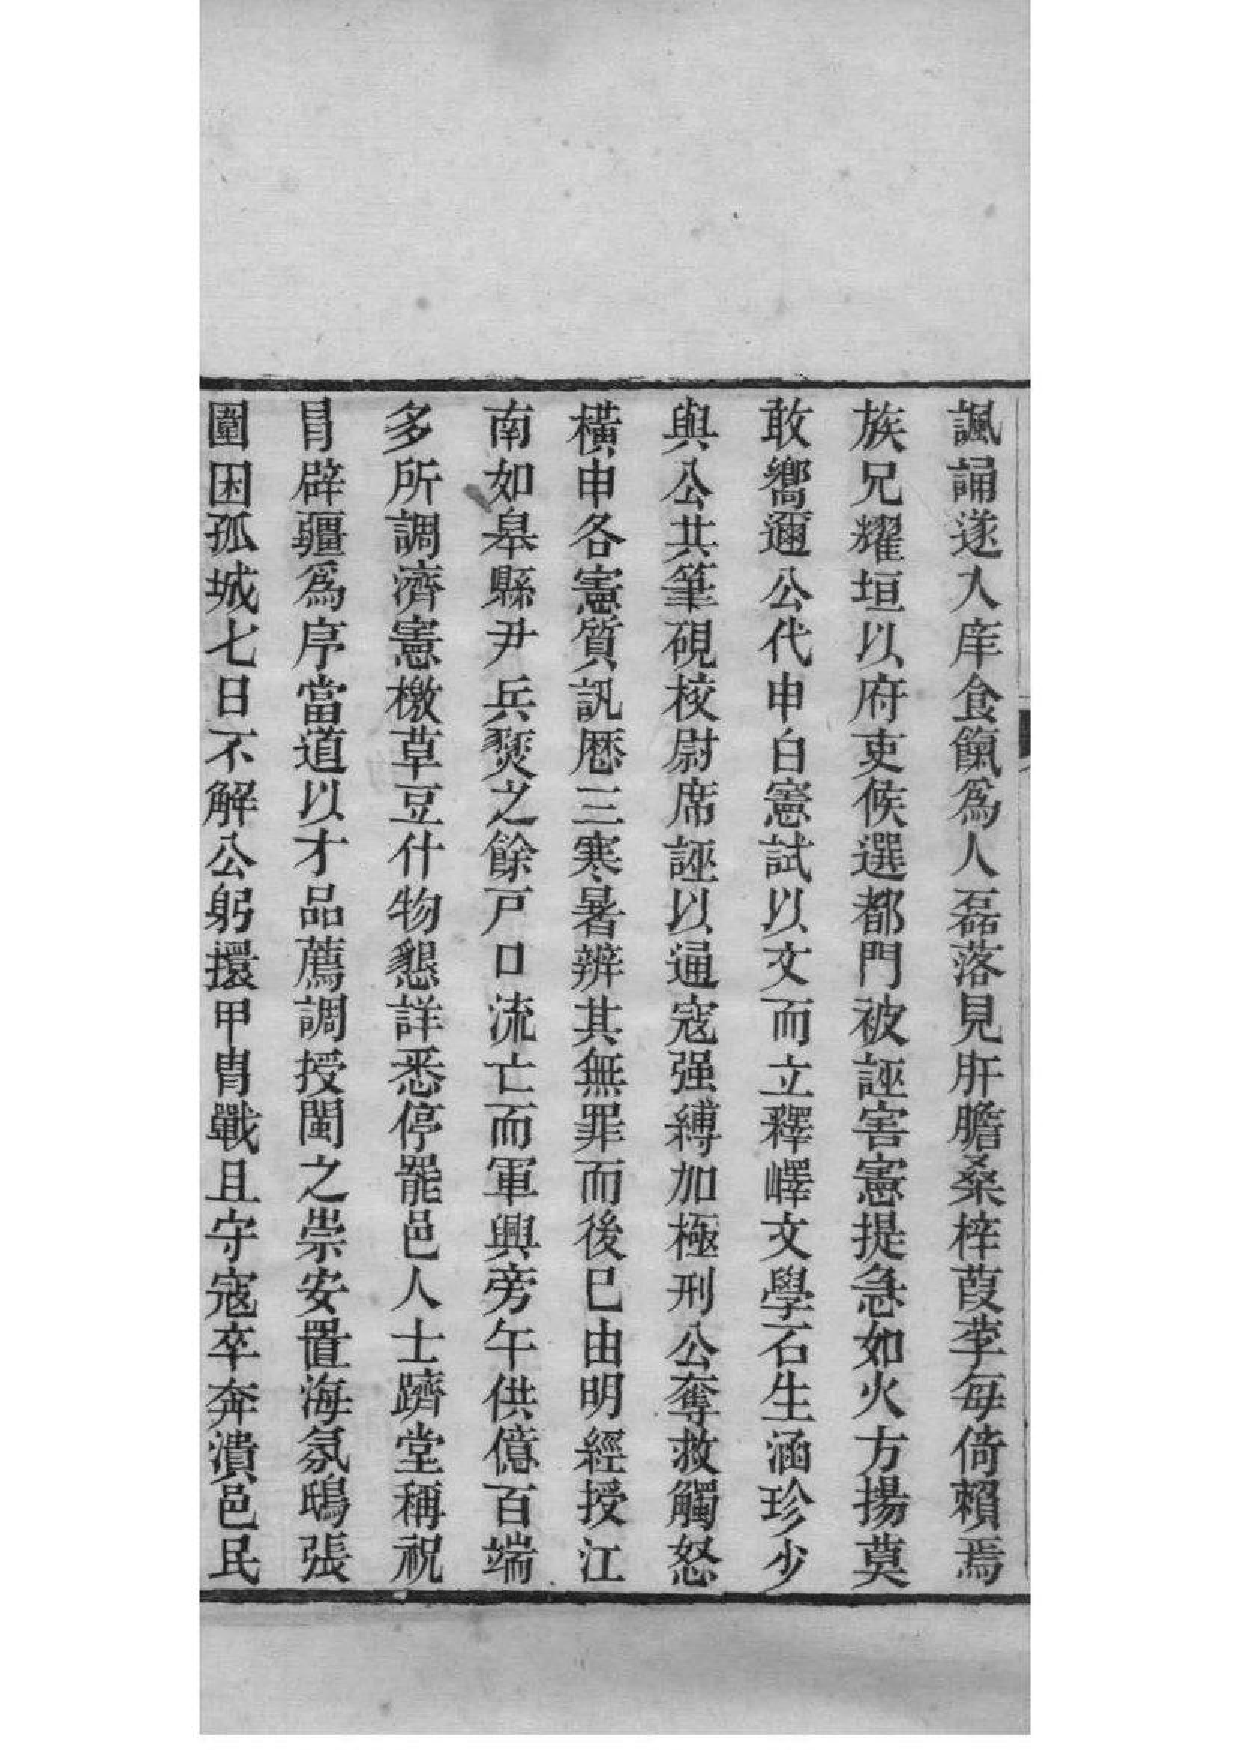 諷誦遂入庠食餼爲人磊落見肝膽桑梓葭莩每倚賴焉
族兄耀垣以府吏候選都門被誣害憲提急如火方揚莫
敢嚮邇公代申白憲試以文而立釋嶧文學石生涵珍少
與公共筆硯校尉席誣以通寇强縛加極刑公奪救觸怒
橫申各憲質訊歷三寒暑辨其無罪而後已由明經授江
南如皋縣尹兵燹之餘戸口流亡而軍興旁午供億百端
多所調濟憲檄草豆什物懇詳悉停罷邑人士躋堂稱祝
冐辟疆爲序當道以才品薦調授閩之崇安置海氛鴟張
圍困孤城七日不解公躬擐甲胄戰且守寇卒奔潰邑民